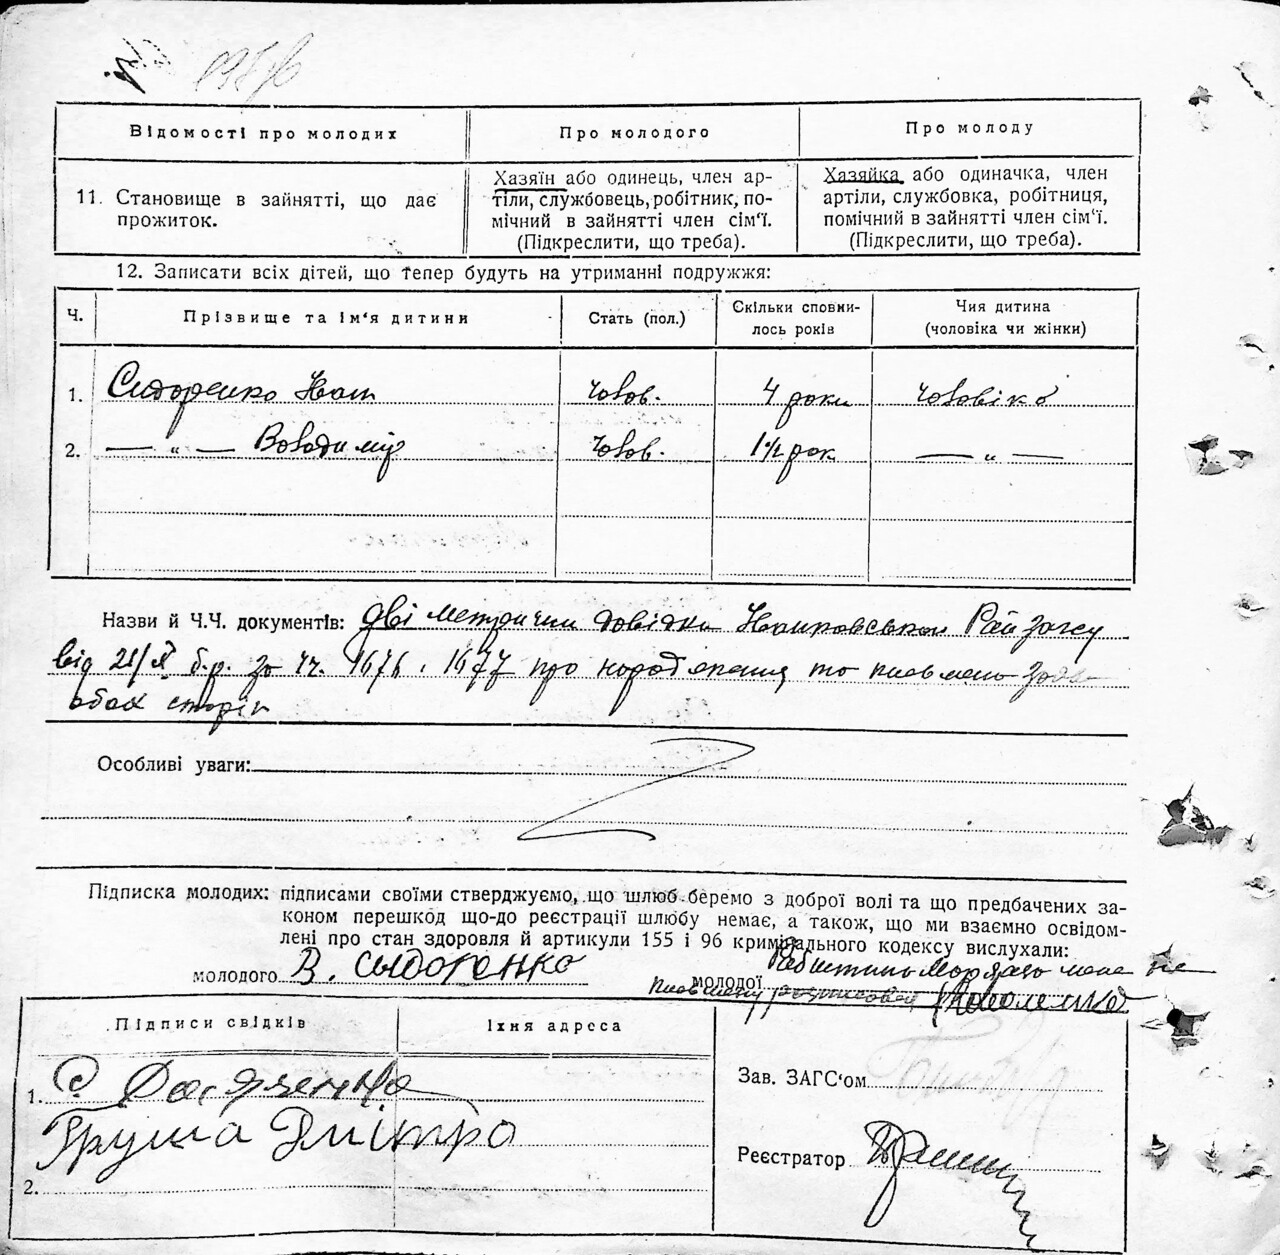 Відомості про молодих
Про молодого
Про молоду
11. Становище в зайнятті, що дає прожиток.
Хазяїн або одинець, член ар-
тіли, службовець, робітник, по-
мічний в зайнятті член сім'ї.
(Підкреслити, що треба).
Хазяйка або одиначка, член
артіли, службовка, робітниця,
помічний в зайнятті член сім'ї.
(Підкреслити, що треба).
12. Записати всіх дітей, що тепер будуть на утриманні подружжя:
Ч.
Прізвище та ім'я дитини
Стать (пол.)
Скільки сповни-
лось років
Чия дитина
(чоловіка чи жінки)
1. Сидоренко Иван чолов. 4 роки чоловіка
2. — „ — Володимір чолов. 1½ рок — „ —
Назви й Ч.Ч. документів: дві метрични довідки Райзагсу
від 21/X б.р. за чч. 1676, 1677 про народження та
обох сторін
Особливі уваги:
Підписка молодих: підписами своїми стверджуємо, що шлюб беремо з доброї волі та що предбачених за-
коном перешкод що-до реєстрації шлюбу немає, а також, що ми взаємно освідом-
лені про стан здоровля й артикули 155 і 96 кримінального кодексу вислухали:
молодого В. Сыдоренко
молодої
Підписи свідків
Їхня адреса
1. С.
Груша Дмітро
2.
Зав. ЗАГС'ом
Реєстратор